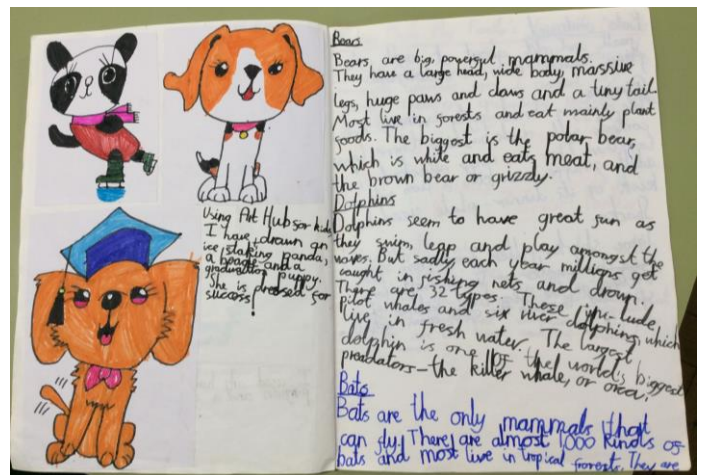 Using Art Hub for kids
I have drawn an
ice staking panda,
a beagle and a
graduation puppy.
She is dressed for
success!
Bears
Bears, are big, powerful mammals.
They have a large head, wide body, massive
legs, huge paws and claws and a tiny tail.
Most live in forests and eat mainly plant
foods. The biggest is the polar bear,
which is white and eats meat, and
the brown bear or grizzly.
Dolphins
Dolphins seem to have great fun as
they swim, leap and play amongst the
waves. But sadly each year millions get
caught in fishing nets and drown.
There are 32 types. These include
pilot whales and six river dolphins, which
live in fresh water. The largest
dolphin is one of the world's biggest
predators-the killer whale, or orca.
Bats
Bats are the only mammals that
can fly! There are almost 1000 kinds of
bats and most live in tropical forests. They are